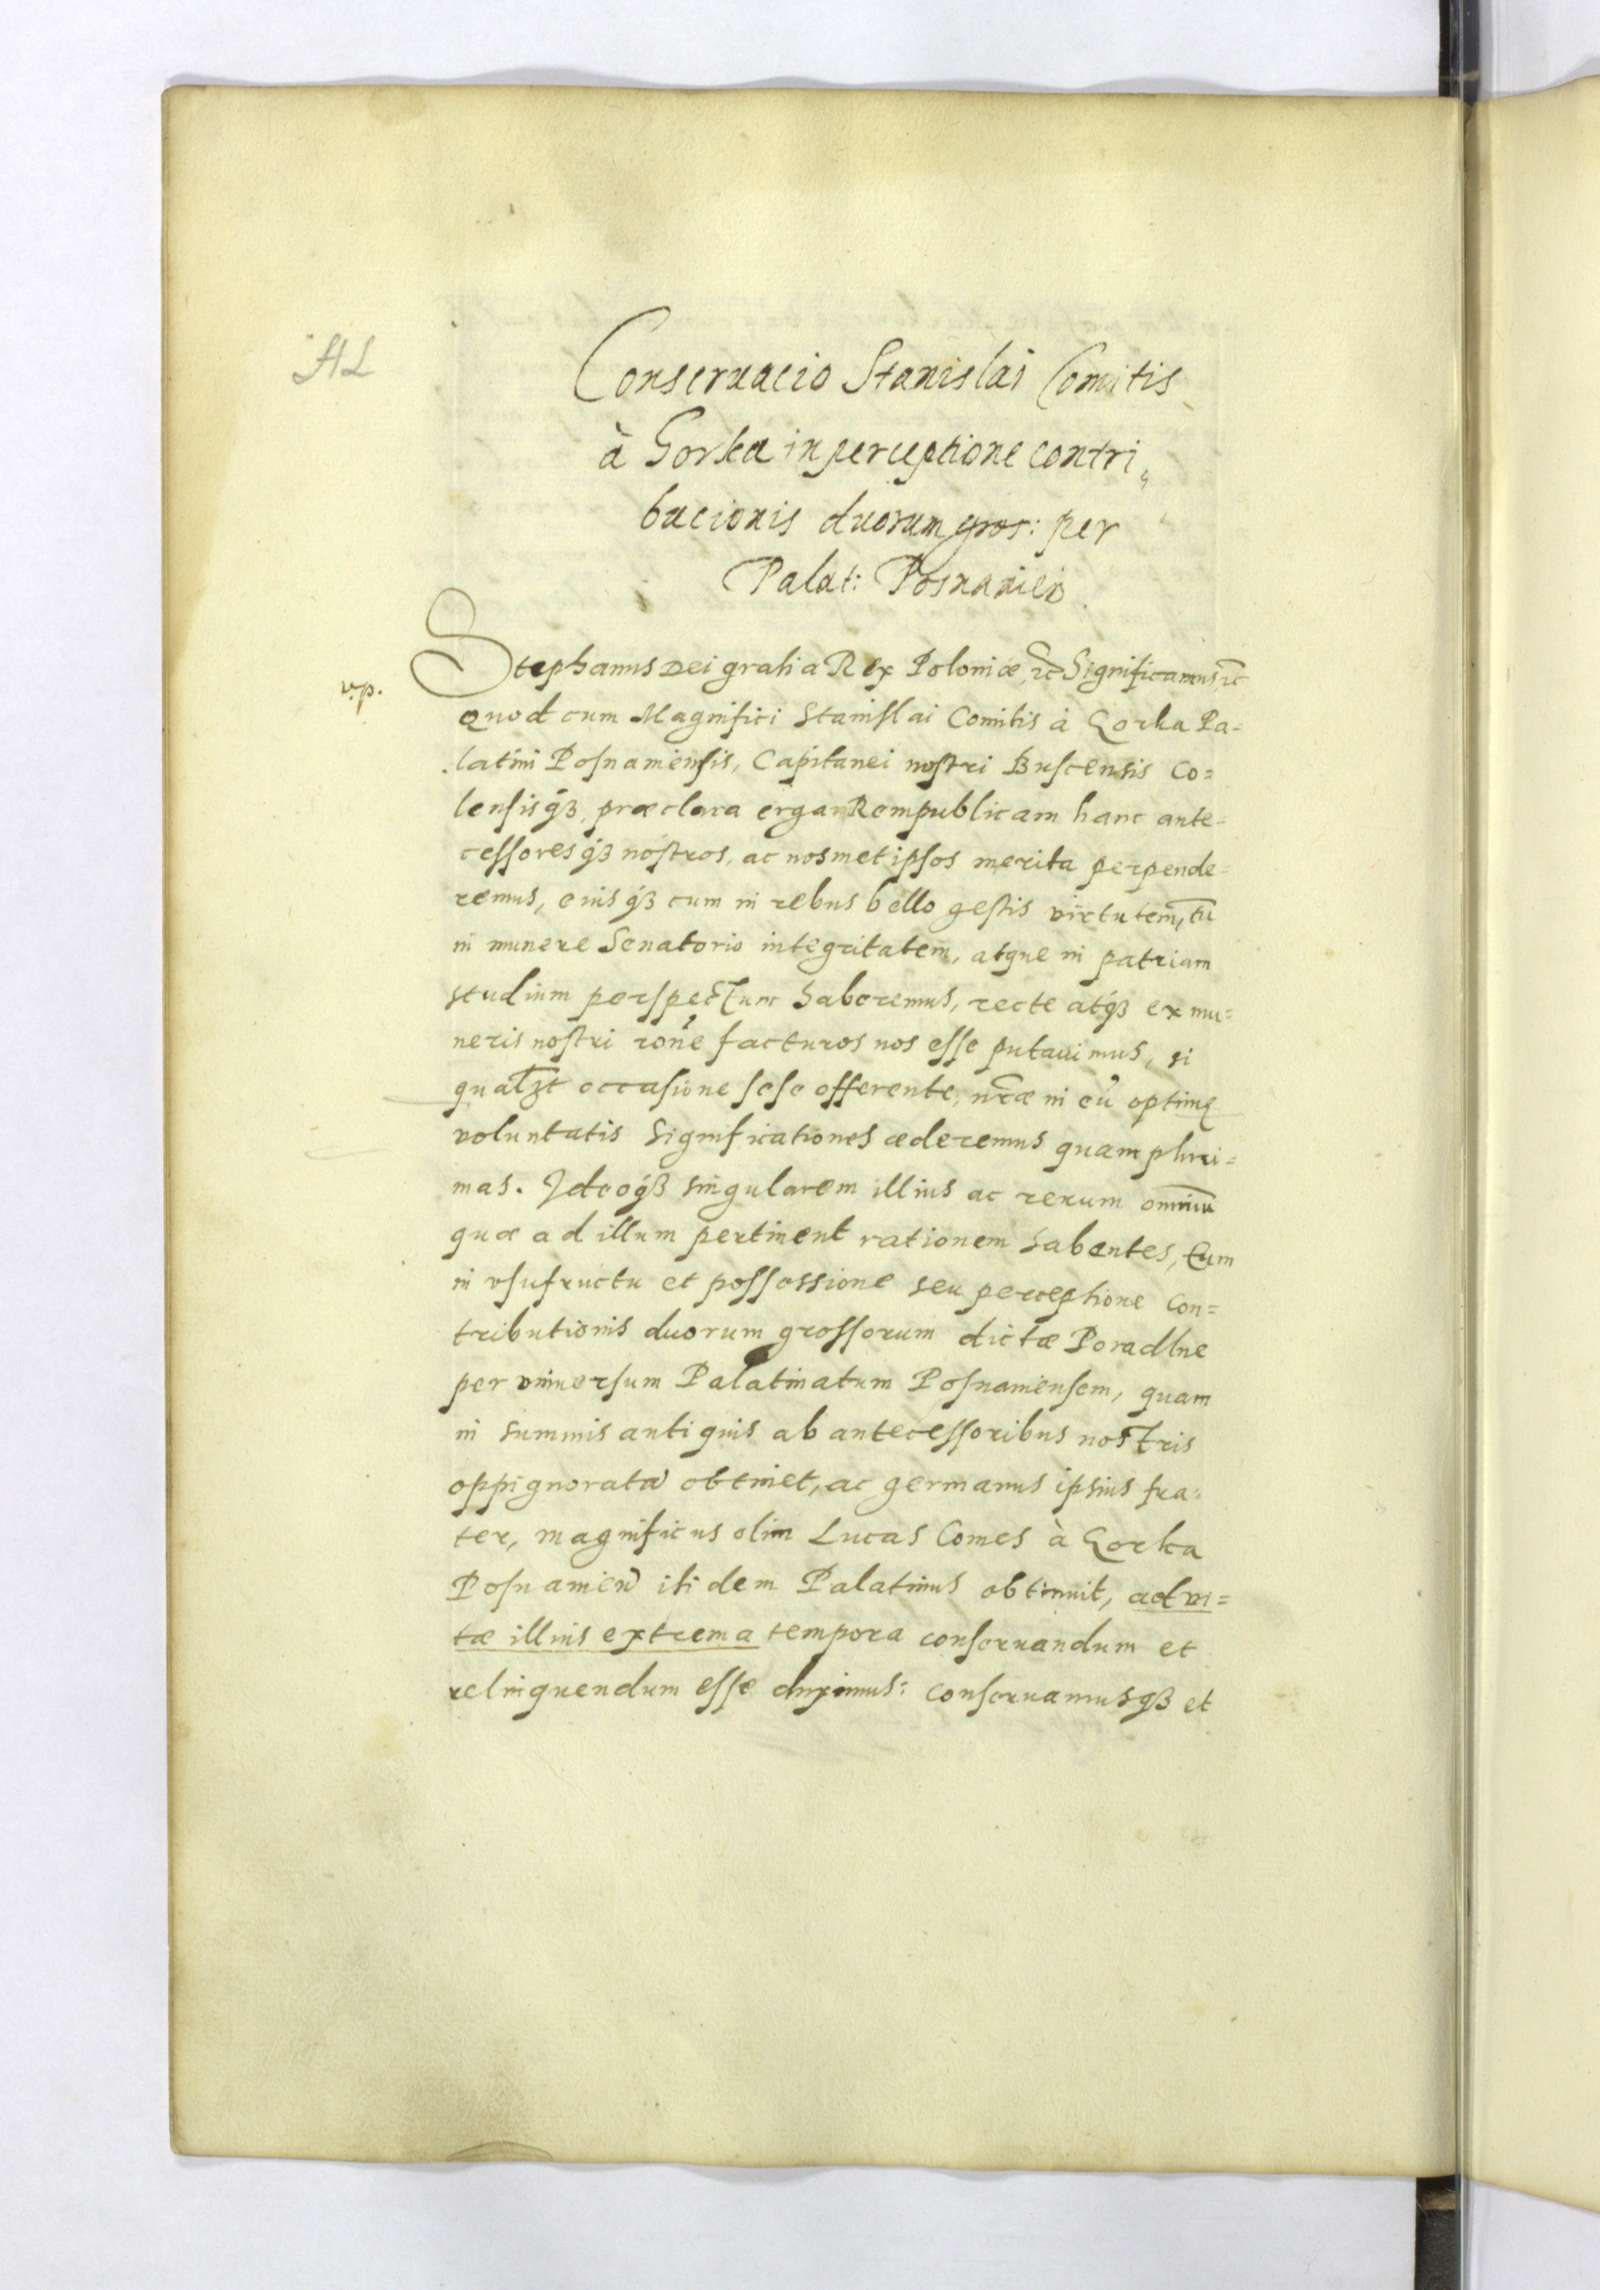 HL
Conseruacio Stanislai Comitis
à Gorka in perceptione contri„
bucionis duorum gros: per
Palat: Posnanieñ
v.p.
Stephanus Dei gratia Rex Poloniæ, ꝛc Significamus, ꝛc
Quod cum Magnifici Stanislai Comitis à Gorka Pa=
latini Posnaniensis, Capitanei nostri Buscensis Co=
lensisqꝫ, præclara erga Rempublicam hanc ante=
cessoresqꝫ nostros, ac nosmet ipsos merita perpende=
remus, eiusqꝫ cum in rebus bello gestis virtutem, tũ
in munere Senatorio integritatem, atque in patriam
studium perspectum haberemus, recte atqꝫ ex mu=
neris nostri rõne facturos nos esse putauimus, si
qualꝫt occasione sese offerente, nr̃æ in eũ optimę
voluntatis significationes æderemus quam pluri=
mas. Ideoqꝫ singularem illius ac rerum omniũ
quæ ad illum pertinent rationem habentes, Eum
in vsufructu et possessione seu perceptione Con=
tributionis duorum grossorum dictæ Poradlne
per vniuersum Palatinatum Posnaniensem, quam
in summis antiquis ab antecessoribus nostris
oppignoratã obtinet, ac germanus ipsius fra=
ter, magnificus olim Lucas Comes à Gorka
Posnanieñ itidem Palatinus obtinuit, ad vi=
tæ illius extrema tempora conseruandum et
relinquendum esse duximus: conseruamusqꝫ et